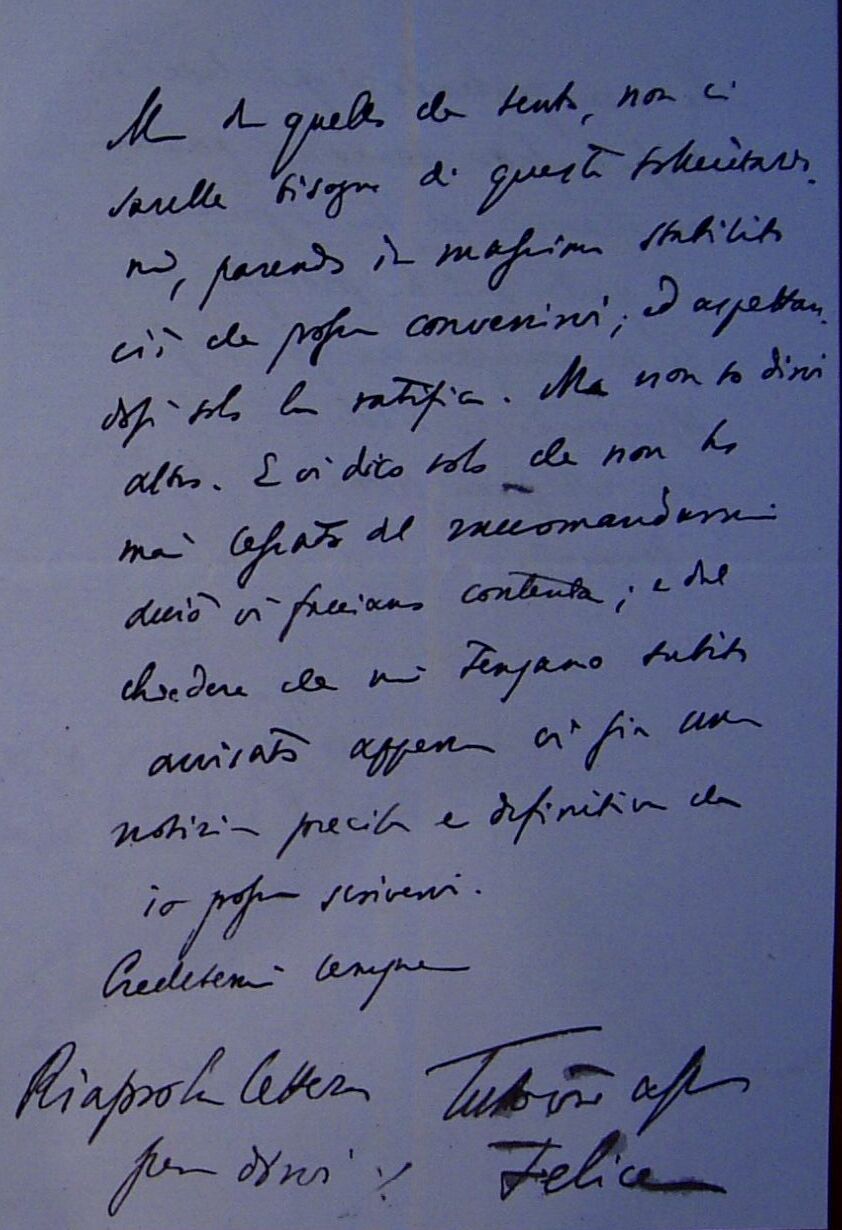 Ma da quello che sento, non ci
sarebbe bisogno di queste sollecitazio-
ni, parendo in massima stabilito
ciò che possa convenirvi; ed aspettan-
dosi solo la ratifica. Ma non so dirvi
altro. E vi dico solo che non ho
mai cessato del raccomandarmi
acciò vi facciano contenta; e del
chiedere che mi tengano subito
avvisato appena vi sia una
notizia precisa e definitiva che
io possa scrivervi.
Credetemi sempre
Riapro la lettera Tutto vro aff
per dirvi ./. Felice